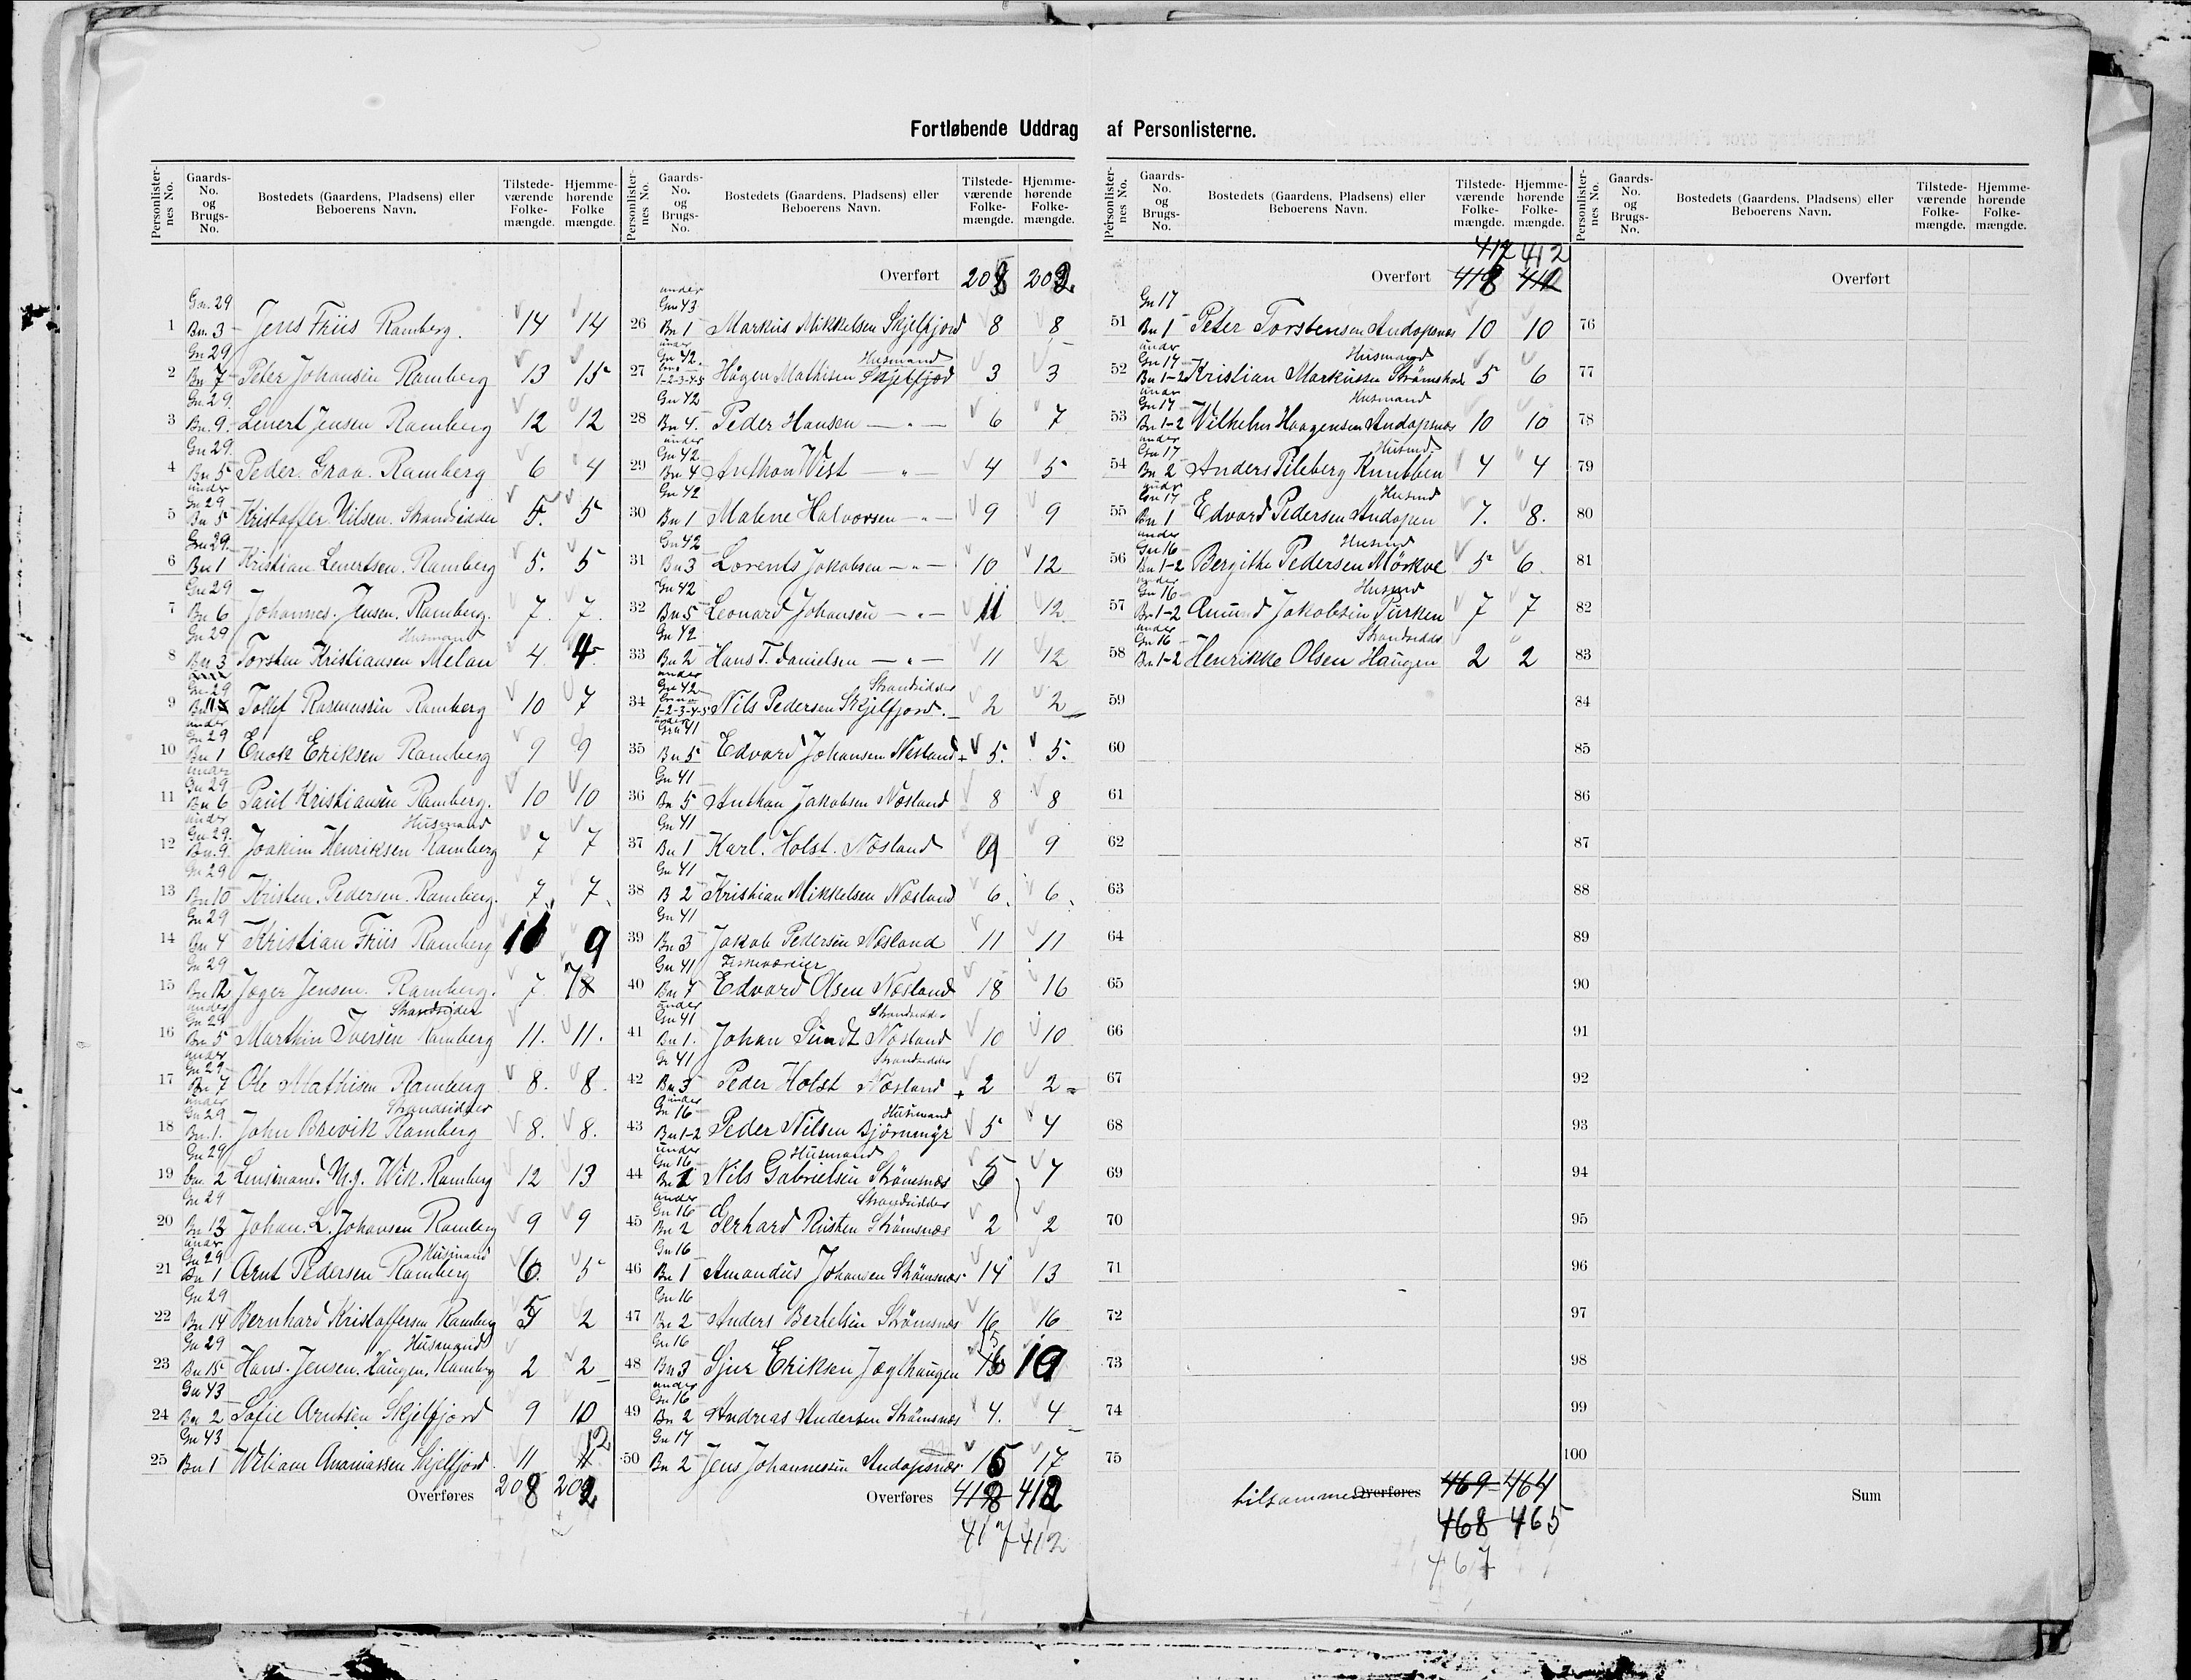 Fortløbende Uddrag af Personlisterne.
Personlisternes No. Gaards-No. og Brugs-No. Bostedets (Gaardens, Pladsens) eller Beboerens Navn. Tilstedeværende Folkemængde. Hjemmehørende Folkemængde.
Gn. 29
1 Bn. 3 Jens Friis Ramberg. 14 14
Gn 29
2 Bn 7 Peter Johansen Ramberg 13 15
Gn. 29.
3 Bn. 9. Lenert Jensen Ramberg 12 12
Gn 29.
4 Bn 5 Peder. Graa. Ramberg 6 4
under
Gn 29
5 Bn 5 Kristoffer Nilsen. Strandsidder 5. 5
Gn 29.
6 Bn 1 Kristian Lenertsen. Ramberg 5. 5
Gn 29
7 Bn 6 Johannes. Jensen. Ramberg. 7. 7.
Gn 29 Husmand
8 Bn 3 Torsten Kristiansen Melan 4. 4.
Gn 29
9 Bn 11 Tollef Rasmussen Ramberg 10 7
under
Gn 29
10 Bn 1 Enok Eriksen Ramberg 9 9
under
Gn 29
11 Bn 6 Paul Kristiansen Ramberg. 10 10
under Husmand
Gn 29.
12 Bn. 9. Joakim Henriksen Ramberg 7 7
Gn 29
13 Bn 10 Kristen. Pedersen. Ramberg. 7. 7.
Gn 29
14 Bn 4 Kristian Friis Ramberg 10 9
Gn 29
15 Bn 12 Jæger Jensen. Ramberg. 7 7
under Strandsidder
Gn 29
16 Bn 5 Marthin Iversen Ramberg 11. 11.
under
Gn 29
17 Bn 7 Ole Mathisen Ramberg 8. 8.
under Strandsidder
Gn 29
18 Bn. 1. John Brevik Ramberg 8. 8.
Gn 29
19 Bn. 2 Lensmand. N.J. Wik. Ramberg 12 13
Gn 29
20 Bn 13 Johan. L. Johansen Ramberg 9 9
under Husmand
Gn 29
21 Bn 1 Arnt Pedersen Ramberg 6. 5
Gn 29
22 Bn 14 Bernhard Kristoffersen Ramberg 5 2
Gn 29 Husmand
23 Bn 15 Hans. Jensen. Haugen. Ramberg 2 2
Gn 43
24 Bn 2 Sofie Arntsen Skjelfjord 9 10
Gn 43
25 Bn 1 Wiliam Ananiassen Skjelfjord 11 12
Overføres 208 202
Personlisternes No. Gaards-No. og Brugs-No. Bostedets (Gaardens, Pladsens) eller Beboerens Navn. Tilstedeværende Folkemængde. Hjemmehørende Folkemængde.
Overført 208 202.
under
Gn 43
26 Bn 1 Markus Mikkelsen Skjelfjord 8 8
under
Gn 42. Husmand
27 1-2-3-4-5 Hågen Mathisen Skjelfjod 3 3
Gn 42
28 Bn 4. Peder Hansen — " — 6 7
under
Gn 42
29 Bn 4 Anthon Wist — " — 4 5
Gn 42
30 Bn 1 Malene Halvorsen — " — 9 9
Gn 42
31 Bn 3 Lorents Jakobsen — " — 10 12
Gn 42
32 Bn 5 Leonard Johansen — " — 11 12
Gn 42
33 Bn 2 Hans T. Danielsen — " — 11 12
under
Gn 42 Strandsidder
34 1-2-3-4-5 Nils Pedersen Skjelfjord. 2 2
under
Gn 41
35 Bn 5 Edvard Johansen Næsland 5. 5.
Gn 41
36 Bn 5 Anthon Jakobsen Næsland 8 8
Gn 41
37 Bn 1 Karl. Holst. Næsland 9 9
Gn 41
38 B 2 Kristian Mikkelsen Næsland 6. 6.
Gn 41
39 Bn 3 Jakob Pedersen Næsland 11 11
Gn 41
40 Bn 7 Edvard Olsen Næsland 18 16
under Strandsidder
Gn 41
41 Bn 1. Johan Sundt Næsland 10 10
Gn 41 Strandsidder
42 Bn 3 Peder Holst Næsland 2 2
under
Gn 16 Husmand
43 Bn 1-2 Peder Nilsen Bjørnmyr 5 4
under
Gn 16 Husmand
44 Bn 1 Nils Gabrielsen Strømsnæs 5 7
under Strandsidder
Gn 16
45 Bn 2 Gerhard Risten Strømsnæs 2 2
Gn 16
46 Bn 1 Amandus Johansen Strømsnæs 14 13
Gn 16
47 Bn 2 Anders Bertelsen Strømsnæs 16 16
Gn 16 15
48 Bn 3 Sjur Eriksen Jægthaugen 16 19
under
Gn 16
49 Bn 2 Andreas Andersen Strømsnæs 4. 4
Gn 17
50 Bn 2 Jens Johannessen Andopsnæs 15 17
Overføres 418 412
417 412
Personlisternes No. Gaards-No. og Brugs-No. Bostedets (Gaardens, Pladsens) eller Beboerens Navn. Tilstedeværende Folkemængde. Hjemmehørende Folkemængde.
417 412
Overført 418 412
Gn 17
51 Bn 1 Peter Torstensen Andopsnæs 10 10
under
Gn 17 Husmand
52 Bn 1-2 Kristian Markussen Strømshod 5 6
under
Gn 17 Husmand
53 Bn 1-2 Wilhelm Haagensen Andopsnæs 10 10
under
Gn 17 Husmd
54 Bn 2 Anders Pileberg Knubben 4 4
under
Gn 17 Husmd
55 Bn 1 Edvard Pedersen Andopen 7. 8.
under
Gn 16 Husmd
56 Bn 1-2 Bergithe Pedersen Mörkve 5 6.
under
Gn 16 Husmd
57 Bn 1-2 Amund Jakobsen Purken 7 7
under
Gn 16 Strandsidder
58 Bn 1-2 Henrikke Olsen Haugen 2 2
59
60
61
62
63
64
65
66
67
68
69
70
71
72
73
74
75
tilsammen Overføres 469 464
468 465
467
Personlisternes No. Gaards-No. og Brugs-No. Bostedets (Gaardens, Pladsens) eller Beboerens Navn. Tilstedeværende Folkemængde. Hjemmehørende Folkemængde.
Overført
76
77
78
79
80
81
82
83
84
85
86
87
88
89
90
91
92
93
94
95
96
97
98
99
100
Sum